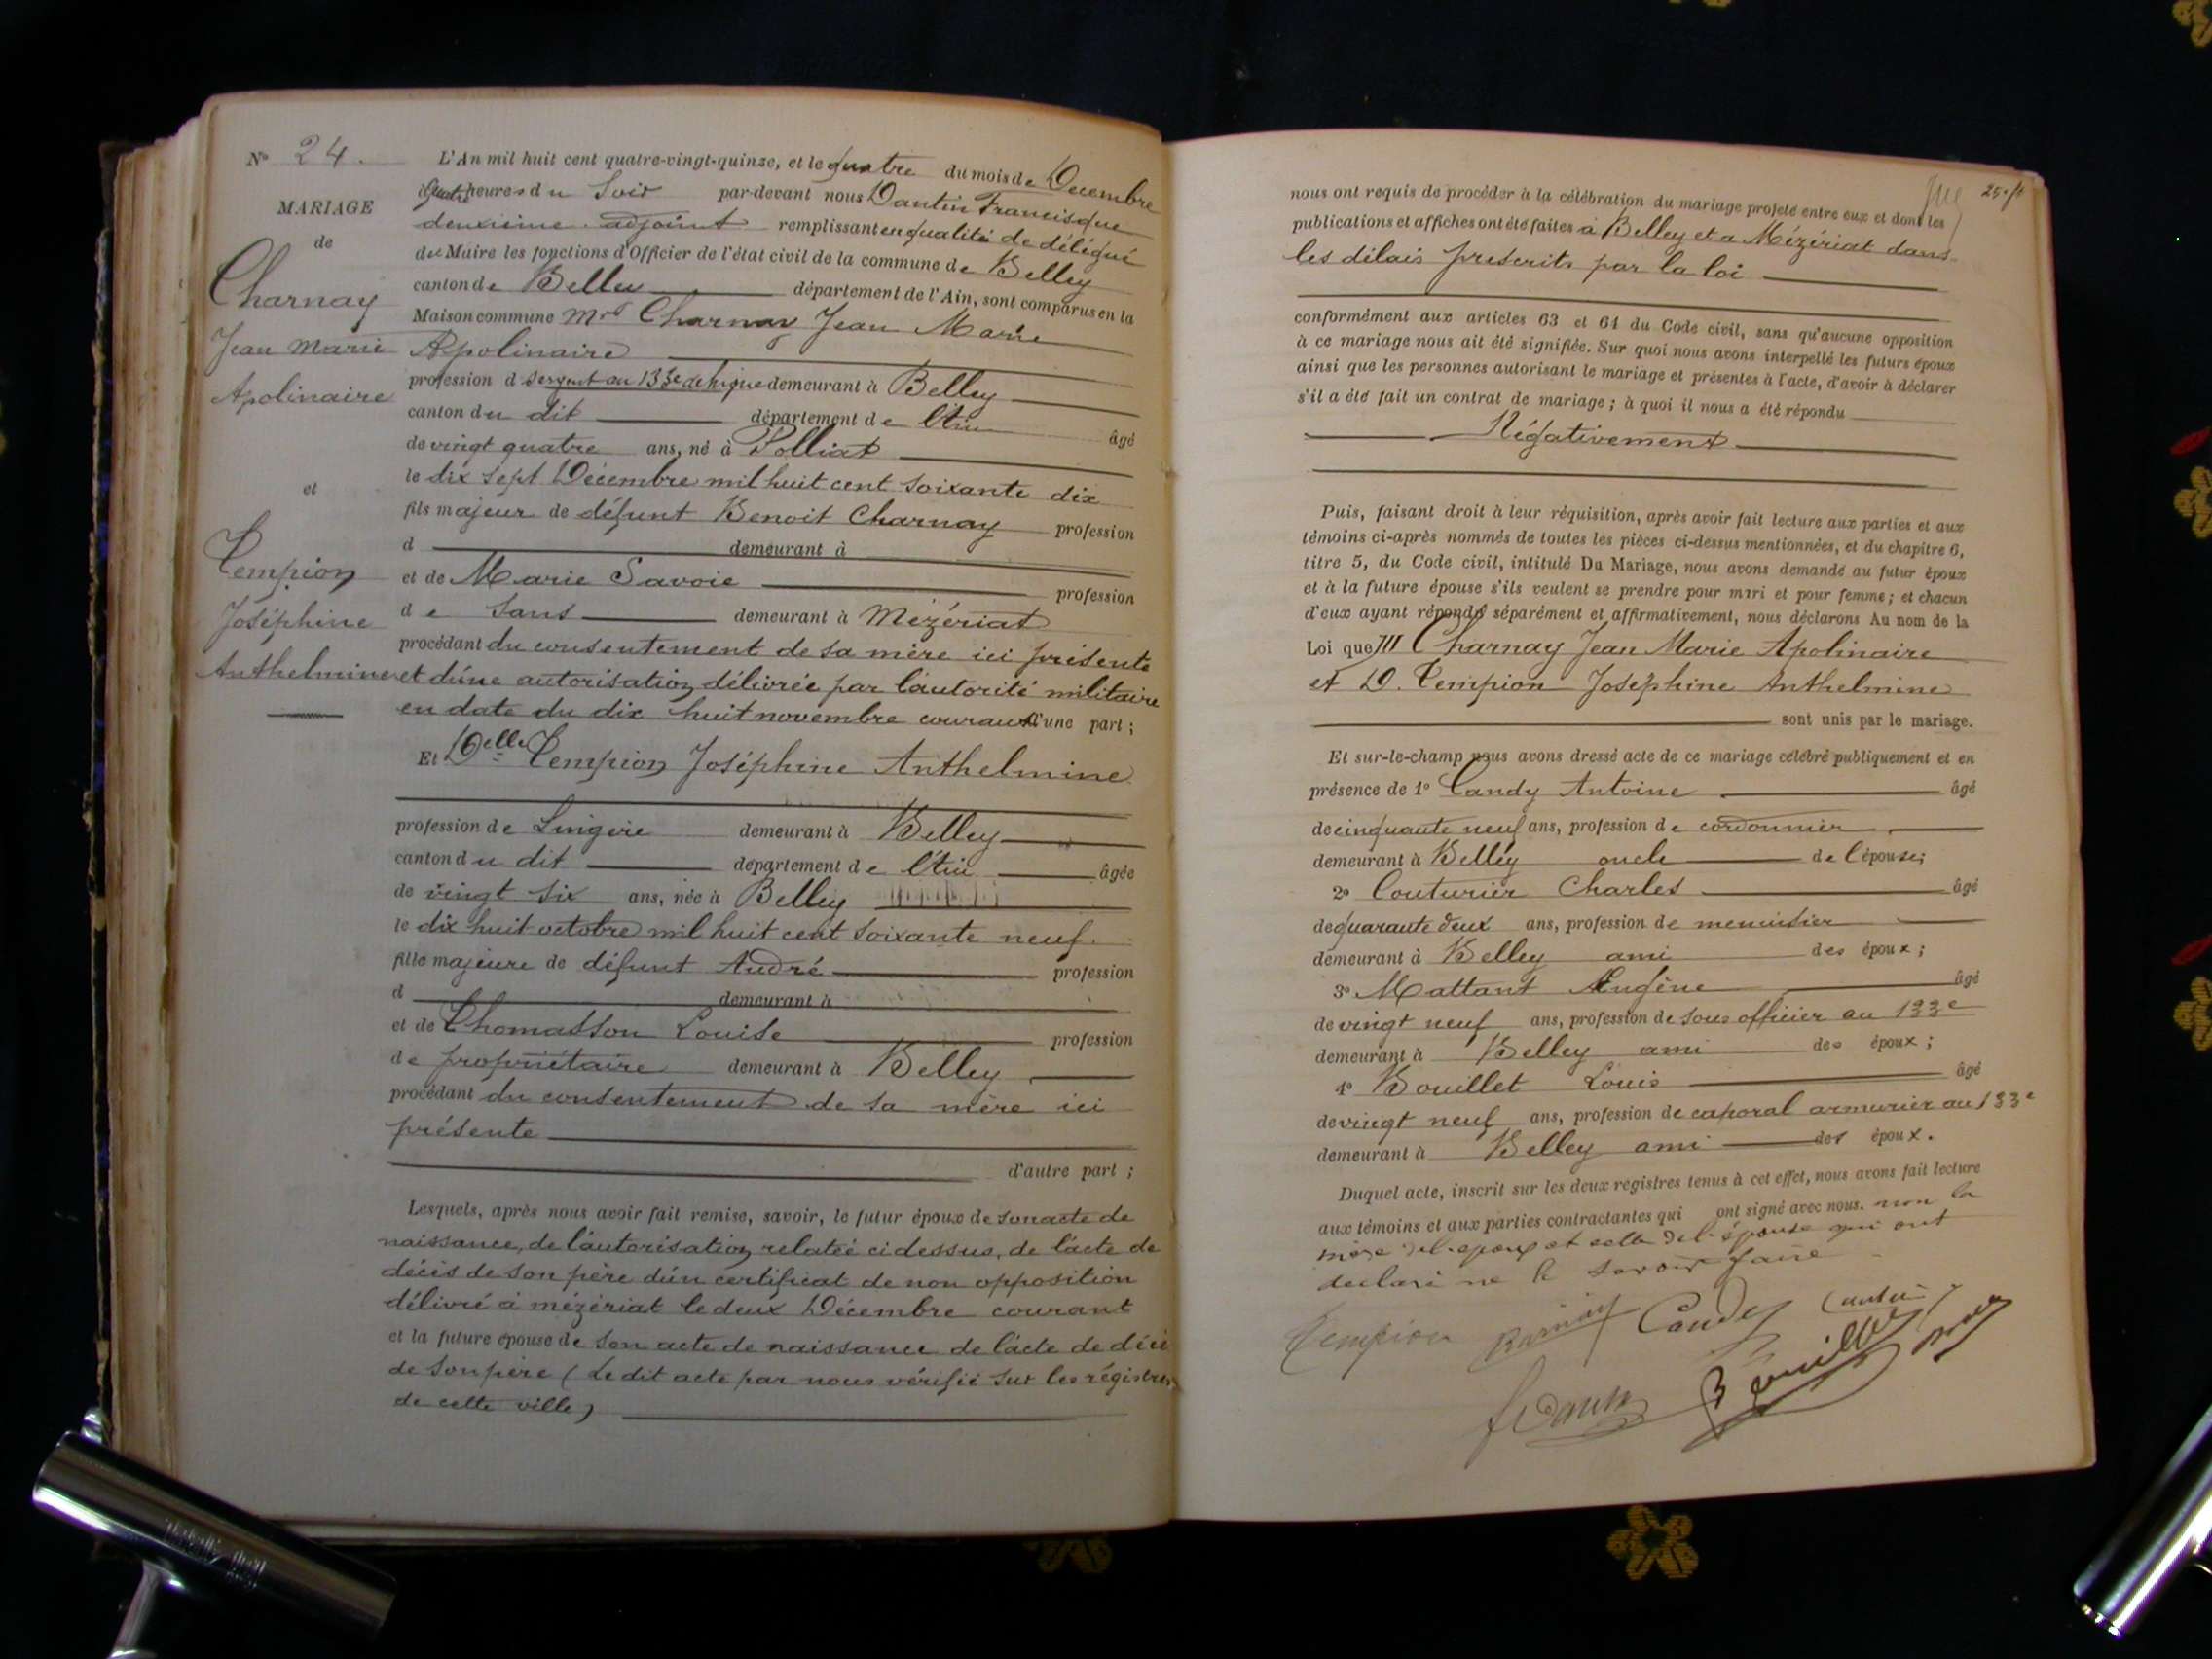 N° 24.
MARIAGE
de
Charnay
Jean Marie
Apolinaire
et
Tempion
Joséphine
Anthelmine
L'An mil huit cent quatre-vingt-quinze, et le quatre du mois de Decembre
à quatre heures du Soir par-devant nous Dantin Francisque
deuxième adjoint remplissant en qualité de délégué
du Maire les fonctions d'Officier de l'état civil de la commune de Belley
canton de Belley département de l'Ain, sont comparus en la
Maison commune Mr Charnay Jean Marie
Apolinaire
profession d sergent au 133e de ligne demeurant à Belley
canton du dit département de l'Ain âgé
de vingt quatre ans, né à Polliat
le dix sept Décembre mil huit cent soixante dix
fils majeur de défunt Benoit Charnay profession
d demeurant à
et de Marie Savoie profession
de Sans demeurant à Mézériat
procédant du consentement de sa mère ici présente
et d'une autorisation délivrée par l'autorité militaire
en date du dix huit novembre courant d'une part ;
Et Delle Tempion Joséphine Anthelmine
profession de Lingère demeurant à Belley
canton du dit département de l'Ain âgée
de vingt six ans, née à Belley
le dix huit octobre mil huit cent soixante neuf.
fille majeure de défunt André profession
d demeurant à
et de Thomasson Louise profession
de propriétaire demeurant à Belley
procédant du consentement de sa mère ici
présente
d'autre part ;
Lesquels, après nous avoir fait remise, savoir, le futur époux de son acte de
naissance, de l'autorisation relatée ci dessus, de l'acte de
décès de son père d'un certificat de non opposition
délivré à mézériat le deux Décembre courant
et la future épouse de son acte de naissance de l'acte de décè
de son père ( Le dit acte par nous vérifié sur les régistres
de cette ville)
25. ft
nous ont requis de procéder à la célébration du mariage projeté entre eux et dont les
publications et affiches ont été faites à Belley et a Mézériat dans
les délais prescrits par la loi
conformément aux articles 63 et 64 du Code civil, sans qu'aucune opposition
à ce mariage nous ait été signifiée. Sur quoi nous avons interpellé les futurs époux
ainsi que les personnes autorisant le mariage et présentes à l'acte, d'avoir à déclarer
s'il a été fait un contrat de mariage ; à quoi il nous a été répondu
Négativement
Puis, faisant droit à leur réquisition, après avoir fait lecture aux parties et aux
témoins ci-après nommés de toutes les pièces ci-dessus mentionnées, et du chapitre 6,
titre 5, du Code civil, intitulé Du Mariage, nous avons demandé au futur époux
et à la future épouse s'ils veulent se prendre pour mari et pour femme ; et chacun
d'eux ayant répondu séparément et affirmativement, nous déclarons Au nom de la
Loi que M Charnay Jean Marie Apolinaire
et D. Tempion Joséphine Anthelmine
sont unis par le mariage.
Et sur-le-champ nous avons dressé acte de ce mariage célébré publiquement et en
présence de 1° Candy Antoine âgé
de cinquante neuf ans, profession de cordonnier
demeurant à Belley oncle de l'épouse ;
2° Couturier Charles âgé
de quarante deux ans, profession de menuisier
demeurant à Belley ami des époux ;
3° Mattant Eugène âgé
de vingt neuf ans, profession de sous officier au 133e
demeurant à Belley ami des époux ;
4° Bouillet Louis âgé
de vingt neuf ans, profession de caporal armurier au 133e
demeurant à Belley ami des époux.
Duquel acte, inscrit sur les deux registres tenus à cet effet, nous avons fait lecture
aux témoins et aux parties contractantes qui ont signé avec nous. non la
mère de l'époux et celle de l'épouse qui ont
declaré ne le savoir faire
Tempion Candy
Bouillet